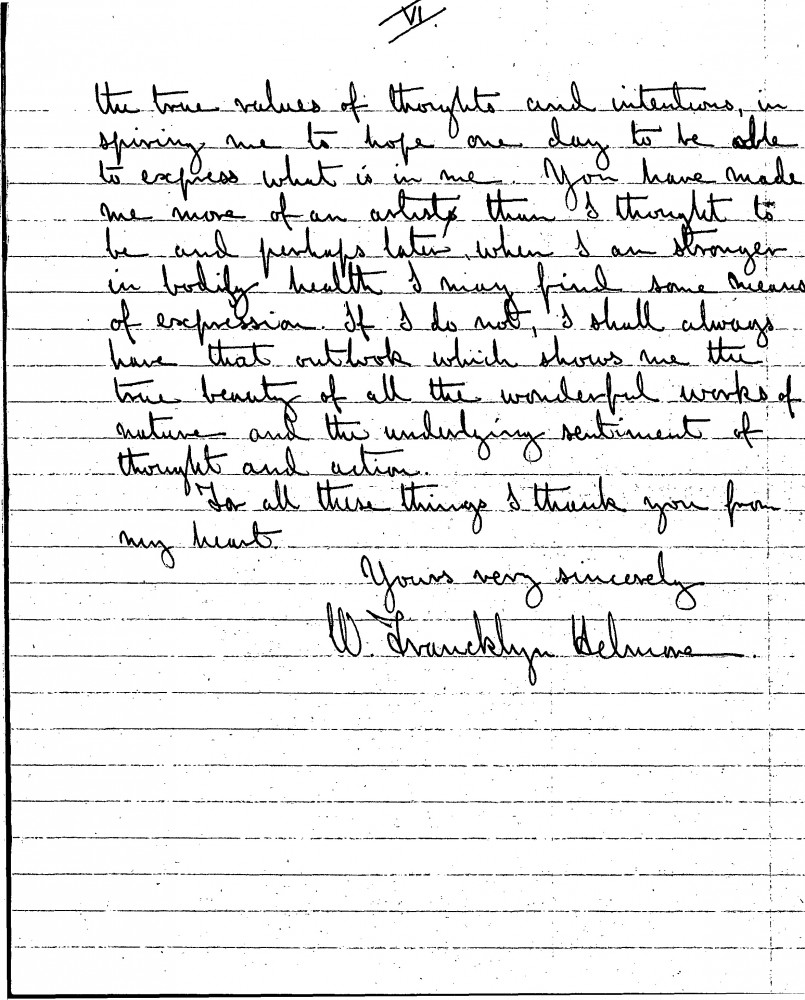 VI.
the true values of thoughts and intentions, in
spiring me to hope one day to be able
to express what is in me. You have made
me more of an artist than I thought to
be and perhaps later, when I am stronger
in bodily health I may find some means
of expression. If I do not, I shall always
have that outlook which shows me the
true beauty of all the wonderful works of
nature and the underlying sentiment of
thought and action.
For all these things I thank you from
my heart.
Yours very sincerely
W. Francklyn Helmore.